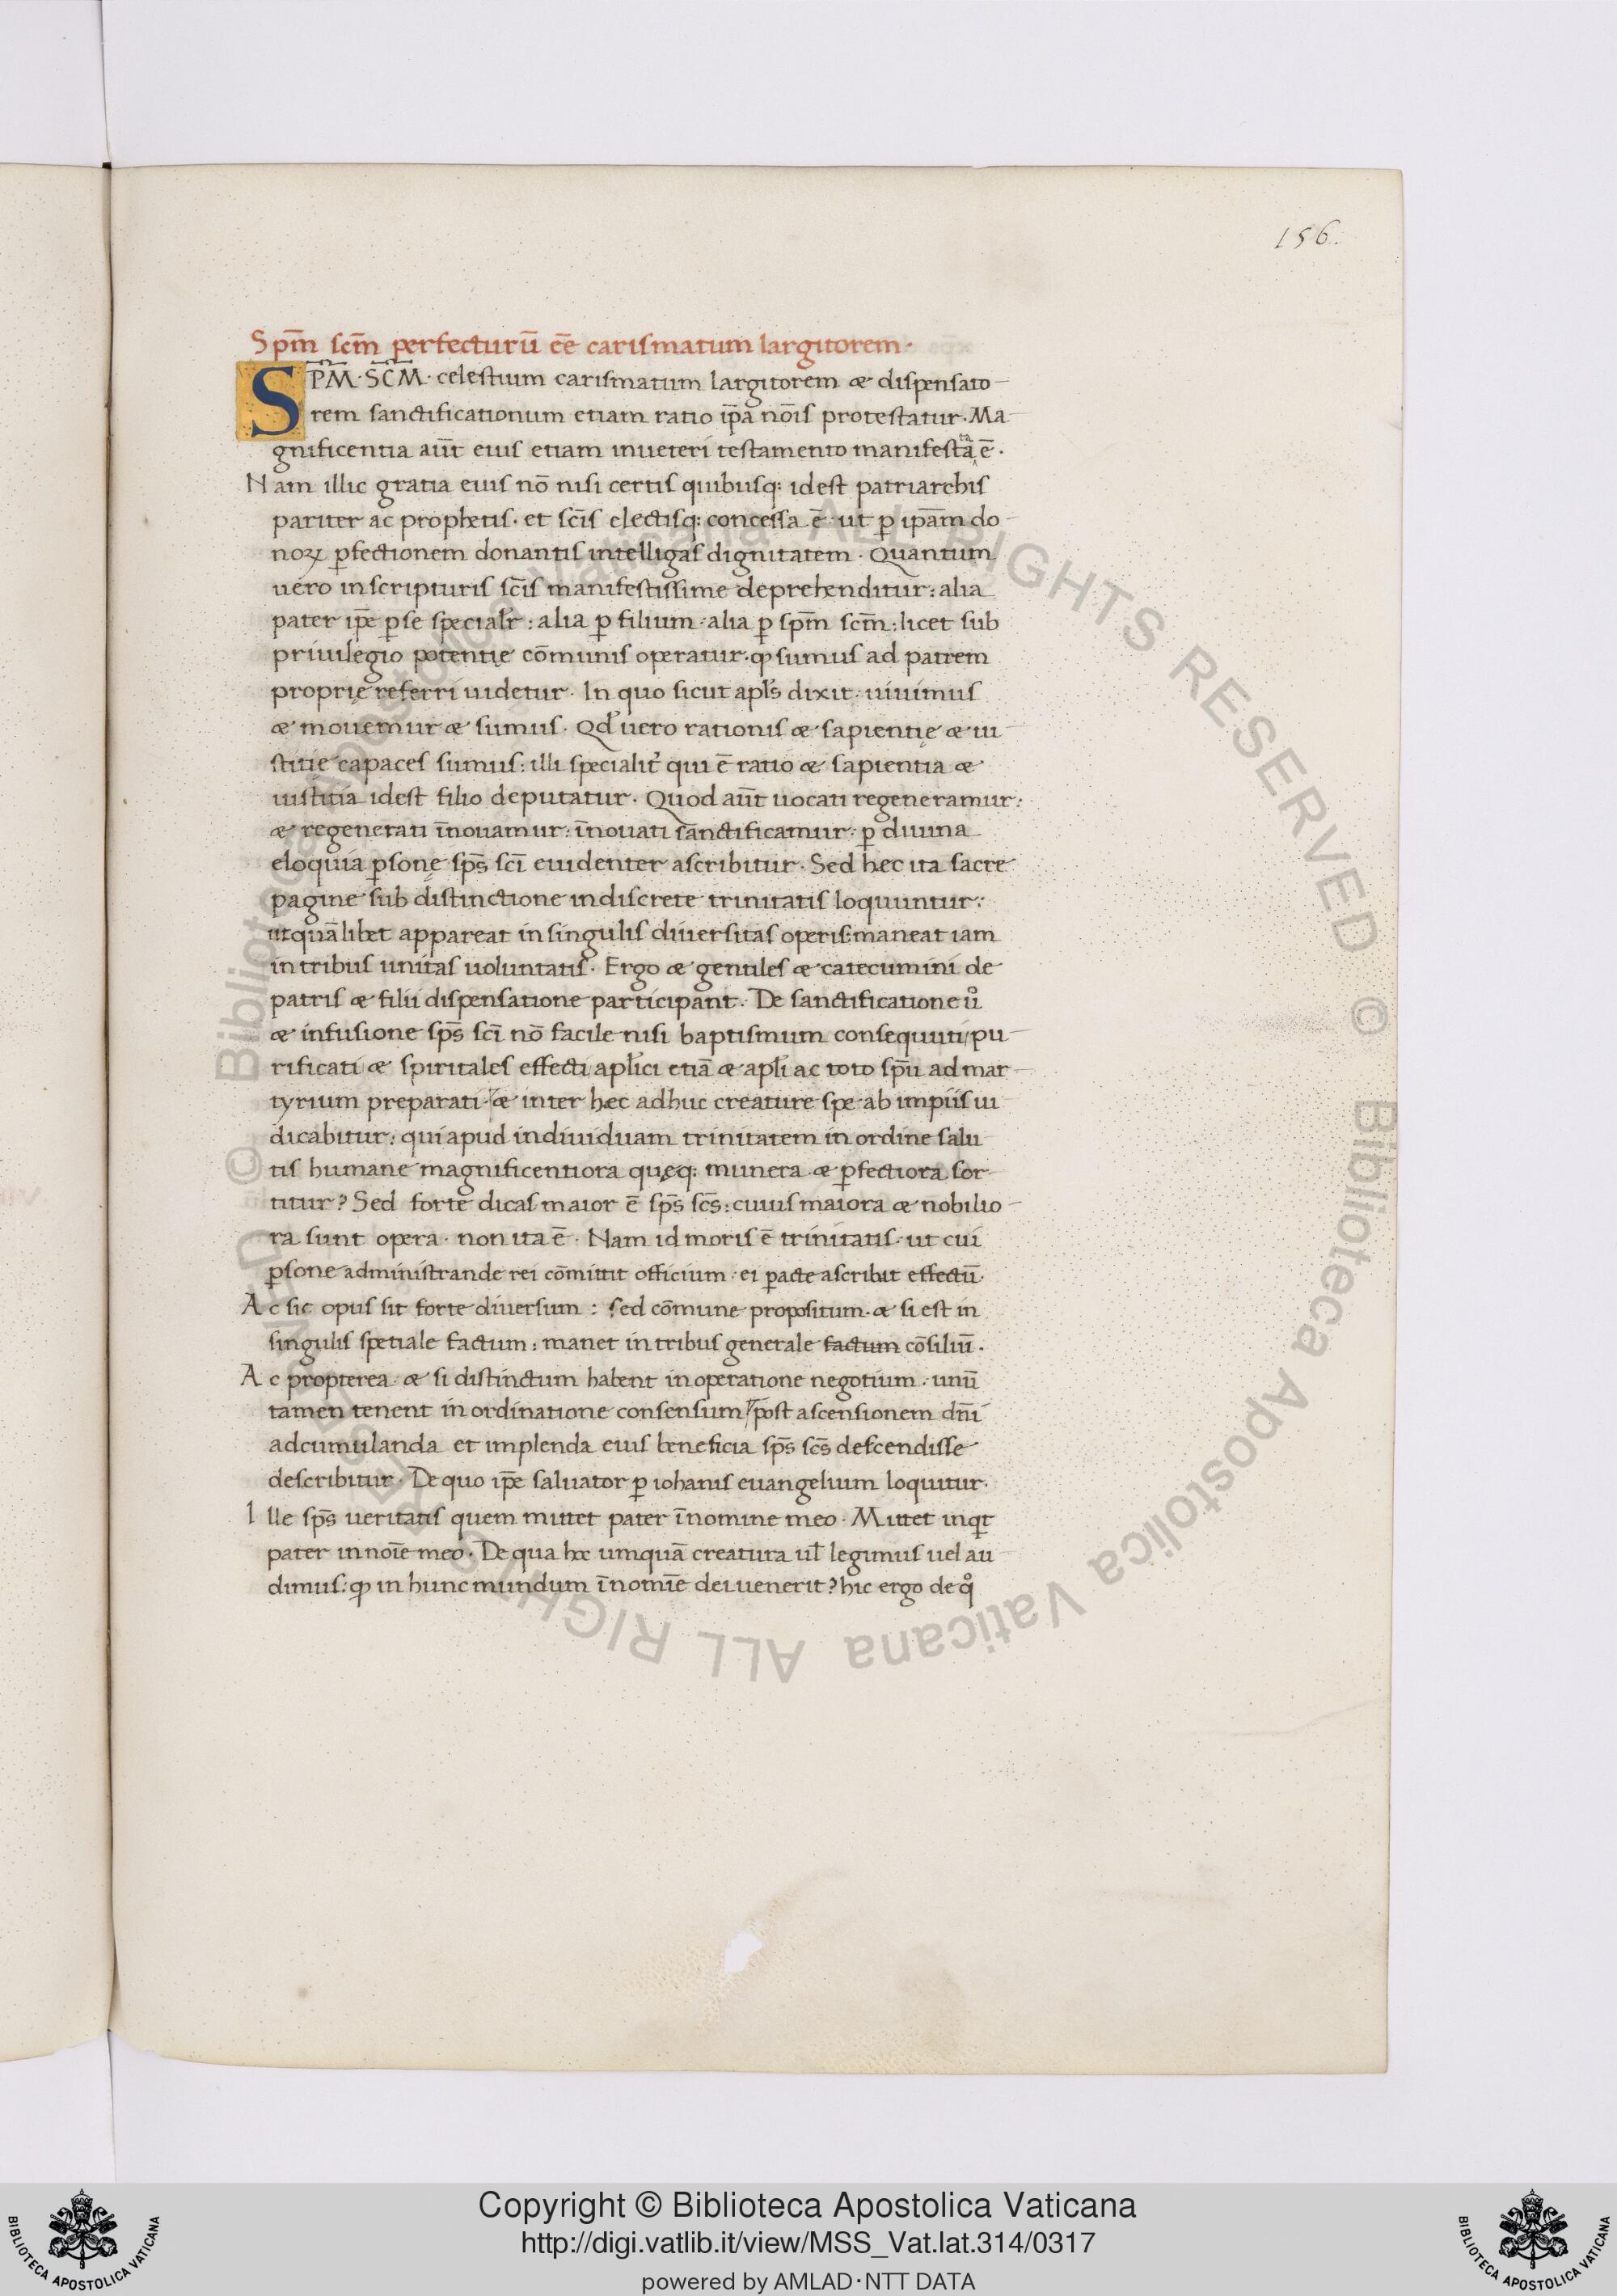 156.
Sp̄m sc̄m perfecturū ēē cariſmatum largitorem·
SP̄M·SC̄M· celeſtium cariſmatum largitorem & diſpenſato
rem ſanctificationum etiam ratio ip̄a nōiſ proteſtatur·Ma
gnificentia aūt eiuſ etiam inueteri teſtamento manifeſtata ē·
Nam illic gratia eiuſ nō niſi certiſ quibuſq; ideſt patriarchiſ
pariter ac prophetiſ· et ſc̄iſ electiſq; conceſſa ē· ut ꝑ ipām do
noꝝ ꝑfectionem donantiſ intelligaſ dignitatem· Quantum
uero inſcripturiſ ſc̄iſ manifeſtiſſime deprehenditur: alia
pater ip̄e ꝑſe ſpecialr̄: alia ꝑ filium· alia ꝑ ſpm̄ ſcm̄: licet ſub
priuilegio potentię cōmuniſ operatur·ꝙ ſumuſ ad patrem
proprię referri uidetur· In quo ſicut apl̄s dixit· uiuimuſ
& mouemur & ſumuſ· Qd̄ uero rationiſ & ſapientię & iu
ſtitię capaceſ ſumuſ: illi ſpecialit̄ qui ē ratio & ſapientia &
iuſtitia ideſt filio deputatur· Quod aūt uocati regeneramur:
& regenerati īnouamur: īnouati ſanctificamur: ꝑ diuina
eloquia ꝑſonę ſps̄ ſcī euidenter aſcribitur· Sed hec ita ſacre
pagine ſub diſtinctione indiſcrete trinitatiſ loquuntur:
utquālibet appareat inſinguliſ diuerſitaſ operiſ:maneat iam
intribuſ unitaſ uoluntatiſ· Ergo & gentileſ & catecumini de
patriſ & filii diſpenſatione participant· De ſanctificatione ůo
& infuſione ſps̄ ſcī nō facile niſi baptiſmum conſequuti/pu
rificati & ſpiritaleſ effecti apl̄ici etiā & apl̄i ac toto ſpū ad mar
tyrium preparati· & inter hæc adhuc creature ſpe ab impiiſ iu
dicabitur: qui apud indiuiduam trinitatem in ordine ſalu
tiſ humane magnificentiora quęq; munera & ꝑfectiora ſor
titur? Sed forte dicaſ maior ē ſps̄ ſcs̄: cuiuſ maiora & nobilio
ra ſunt opera· non ita ē· Nam id moriſ ē trinitatiſ· ut cui
ꝑſone adminiſtrande rei cōmittit officium· ei ꝑacte aſcribat effectū·
Ac ſic opuſ ſit forte diuerſum: ſed cōmune propoſitum· & ſi eſt in
ſinguliſ ſpetiale factum: manet intribuſ generale factum cōſiliū·
Ac propterea & ſi diſtinctum habent inoperatione negotium· unū
tamen tenent in ordinatione conſenſum/poſt aſcenſionem dn̄i
adcumulanda et implenda eiuſ beneficia ſps̄ ſcs̄ deſcendiſſe
deſcribitur· De quo ip̄e ſaluator ꝑ iohaniſ euangelium loquitur·
Ille ſps̄ ueritatiſ quem mittet pater īnomine meo· Mittet inq̄t
pater innoīe meo· De qua hæc umquā creatura ul̄ legimuſ uel au
dimuſ: ꝙ in hunc mundum īnomīe dei uenerit? hic ergo de qͦ
© Biblioteca Apostolica Vaticana ALL RIGHTS RESERVED © Biblioteca Apostolica Vaticana ALL RIGHTS RESERVED
Copyright © Biblioteca Apostolica Vaticana
http://digi.vatlib.it/view/MSS_Vat.lat.314/0317
powered by AMLAD·NTT DATA
BIBLIOTECA APOSTOLICA VATICANA
BIBLIOTECA APOSTOLICA VATICANA